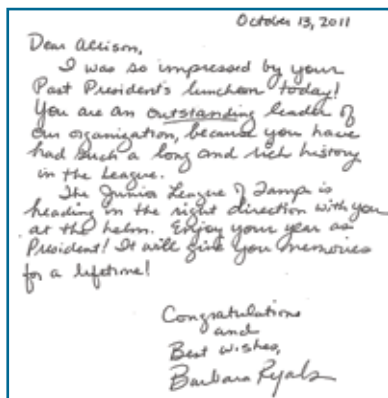 October 13, 2011
Dear Allison,
I was so impressed by your
Past President's luncheon today!
You are an outstanding leader of
our organization, because you have
had such a long and rich history
in the League.
The Junior League of Tampa is
heading in the right direction with you
at the helm. Enjoy your year as
President! It will give you memories
for a lifetime!
Congratulations
and
Best wishes,
Barbara Ryals